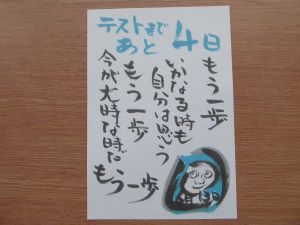 テストまで
あと4日
もう一歩
いかなる時も
自分は思う
もう一歩
今が大時な時だ
もう一歩